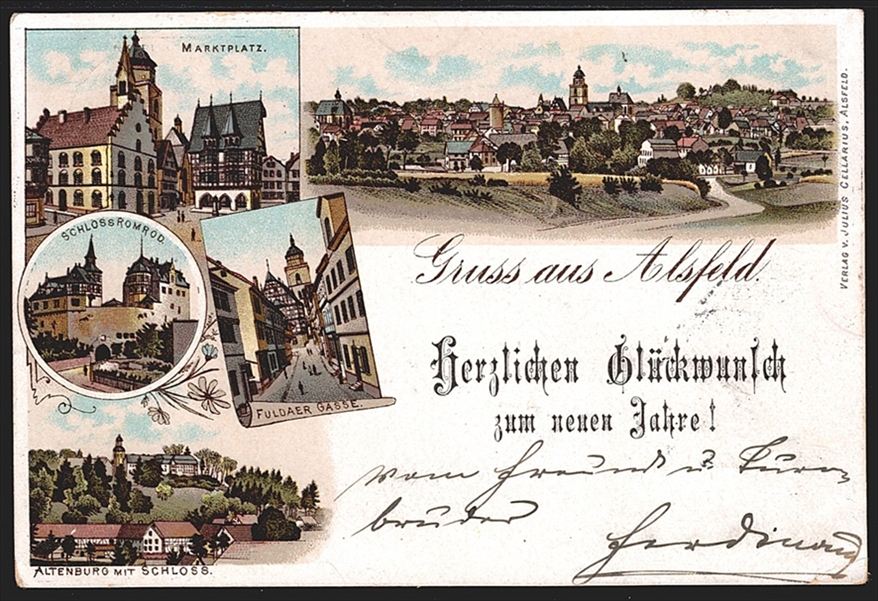 MARKTPLATZ.
SCHLOSS ROMROD.
FULDAER GASSE.
ALTENBURG MIT SCHLOSS.
VERLAG V. JULIUS CELLARIUS, ALSFELD.
Gruss aus Alsfeld.
Herzlichen Glückwunsch
zum neuen Jahre!
vom Freund u. Turn-
bruder
Ferdinand